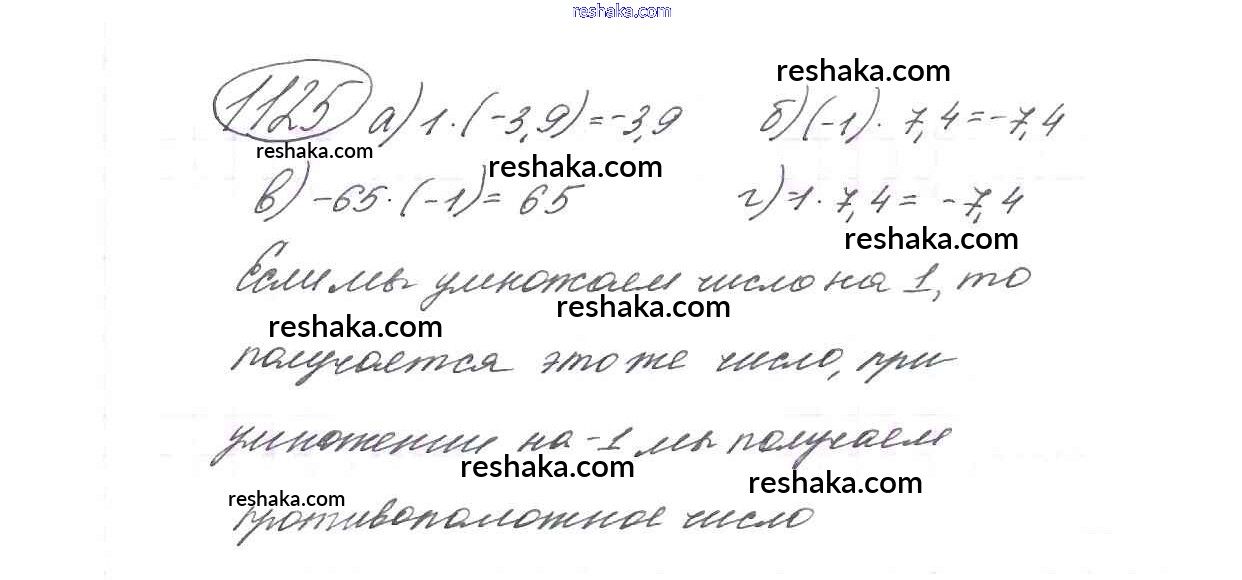 reshaka.com
1125 а) 1·(-3,9)=-3,9 б)(-1)·7,4=-7,4
в)-65·(-1)=65 г)-1·7,4=-7,4
Если мы умножаем число на 1, то
получается это же число, при
умножении на -1 мы получаем
противоположное число
reshaka.com
reshaka.com
reshaka.com
reshaka.com
reshaka.com
reshaka.com
reshaka.com
reshaka.com
reshaka.com